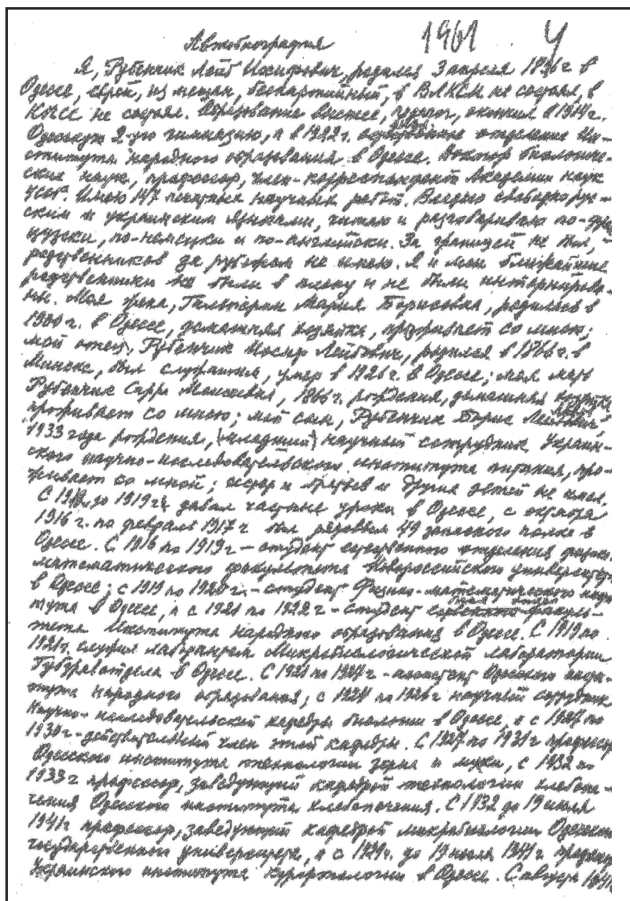 Автобиография 1961 4
Я, Рубенчик Лейб Иосифович, родился 3 апреля 1896 г. в
Одессе, еврей, из мещан, беспартийный, в ВЛКСМ не состоял, в
КПСС не состоял. Образование высшее, окончил в 1914 г.
Одесскую 2-ую гимназию, а в 1922 г. отделение Ин-
ститута народного образования в Одессе. Доктор биологиче-
ских наук, профессор, член-корреспондент Академии наук
УССР. Имею 147 научных работ. Владею свободно рус-
ским и украинским языками, читаю и разговариваю по-фран-
цузски, по-немецки и по-английски. За границей не был,
родственников за рубежом не имею. Я и мои ближайшие
родственники не были в плену и не были интернирова-
ны. Моя жена, Мария Борисовна, родилась в
1900 г. в Одессе, домашняя хозяйка, проживает со мною;
мой отец, Рубенчик Иосиф Лейбович, родился в 1866 г. в
Минске, был служащим, умер в 1926 г. в Одессе; моя мать
Рубенчик Сарра Моисеевна, 1866 г. рождения, домашняя хозяйка
проживает со мною; мой сын, Рубенчик Борис Львович
1933 года рождения, (младший) научный сотрудник Украин-
ского научно-исследовательского института питания, про-
живает со мной; сестер и братьев и других детей не имел.
С до 1919 г. давал частные уроки в Одессе, с октября
1916 г. по февраль 1917 г. был рядовым 49 запасного полка в
Одессе. С 1916 по 1919 г. – студент естественного отделения физико-
математического факультета Новороссийского университета
в Одессе; с 1919 по 1920 г. – студент Физико-математического инсти-
тута в Одессе, а с 1920 по 1922 г. – студент факуль-
тета Института народного образования в Одессе. С 1919 по
1921 г. служил лаборантом Микробиологической лаборатории
Губздравотдела в Одессе. С по г. – ассистент Одесского инсти-
тута народного образования; с по 1926 г. научный сотрудник
Научно-исследовательской кафедры биологии в Одессе, а с 1927 по
1930 г. – действительный член этой кафедры. С по г. профессор
Одесского института технологии зерна и муки, с 1932 по
1933 г. профессор, заведующий кафедрой технологии хлебопе-
чения Одесского института хлебопечения. С 1932 до 19 июля
1941 г. профессор, заведующий кафедрой микробиологии Одесского
государственного университета, а с до 19 июля 1941 г. профессор
Украинского института курортологии в Одессе. С августа 1941